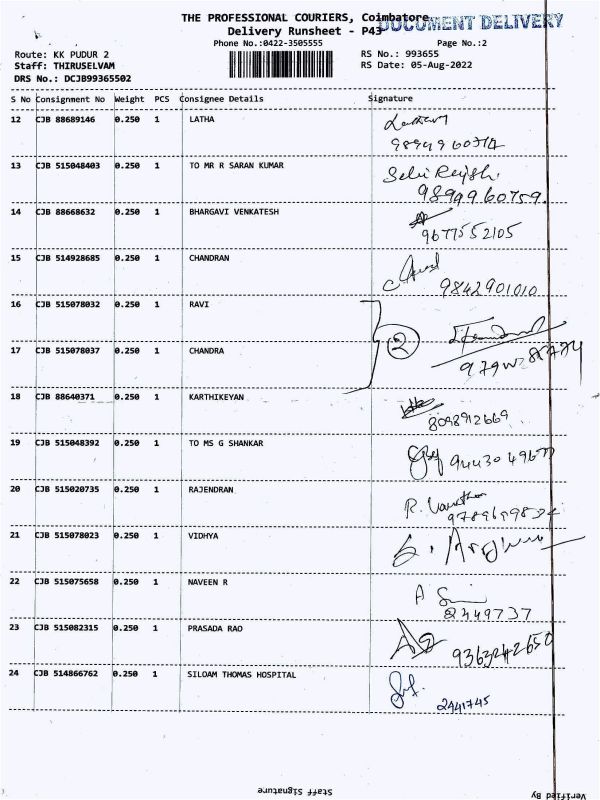 THE PROFESSIONAL COURIERS, Coimbatore
DOCUMENT DELIVERY
Delivery Runsheet - P43
Phone No.:0422-3505555 Page No.:2
Route: KK PUDUR 2 RS No.: 993655
Staff: THIRUSELVAM RS Date: 05-Aug-2022
DRS No.: DCJB99365502
S No Consignment No Weight PCS Consignee Details Signature
12 CJB 88689146 0.250 1 LATHA
13 CJB 515048403 0.250 1 TO MR R SARAN KUMAR
9899960759
14 CJB 88668632 0.250 1 BHARGAVI VENKATESH
9677552105
15 CJB 514928685 0.250 1 CHANDRAN
9842901010
16 CJB 515078032 0.250 1 RAVI
2
17 CJB 515078037 0.250 1 CHANDRA
18 CJB 88640371 0.250 1 KARTHIKEYAN
8098912669
19 CJB 515048392 0.250 1 TO MS G SHANKAR
20 CJB 515020735 0.250 1 RAJENDRAN
R.
21 CJB 515078023 0.250 1 VIDHYA
22 CJB 515075658 0.250 1 NAVEEN R
A
2449737
23 CJB 515082315 0.250 1 PRASADA RAO
9363242650
24 CJB 514866762 0.250 1 SILOAM THOMAS HOSPITAL
2441745
Staff Signature
Verified By